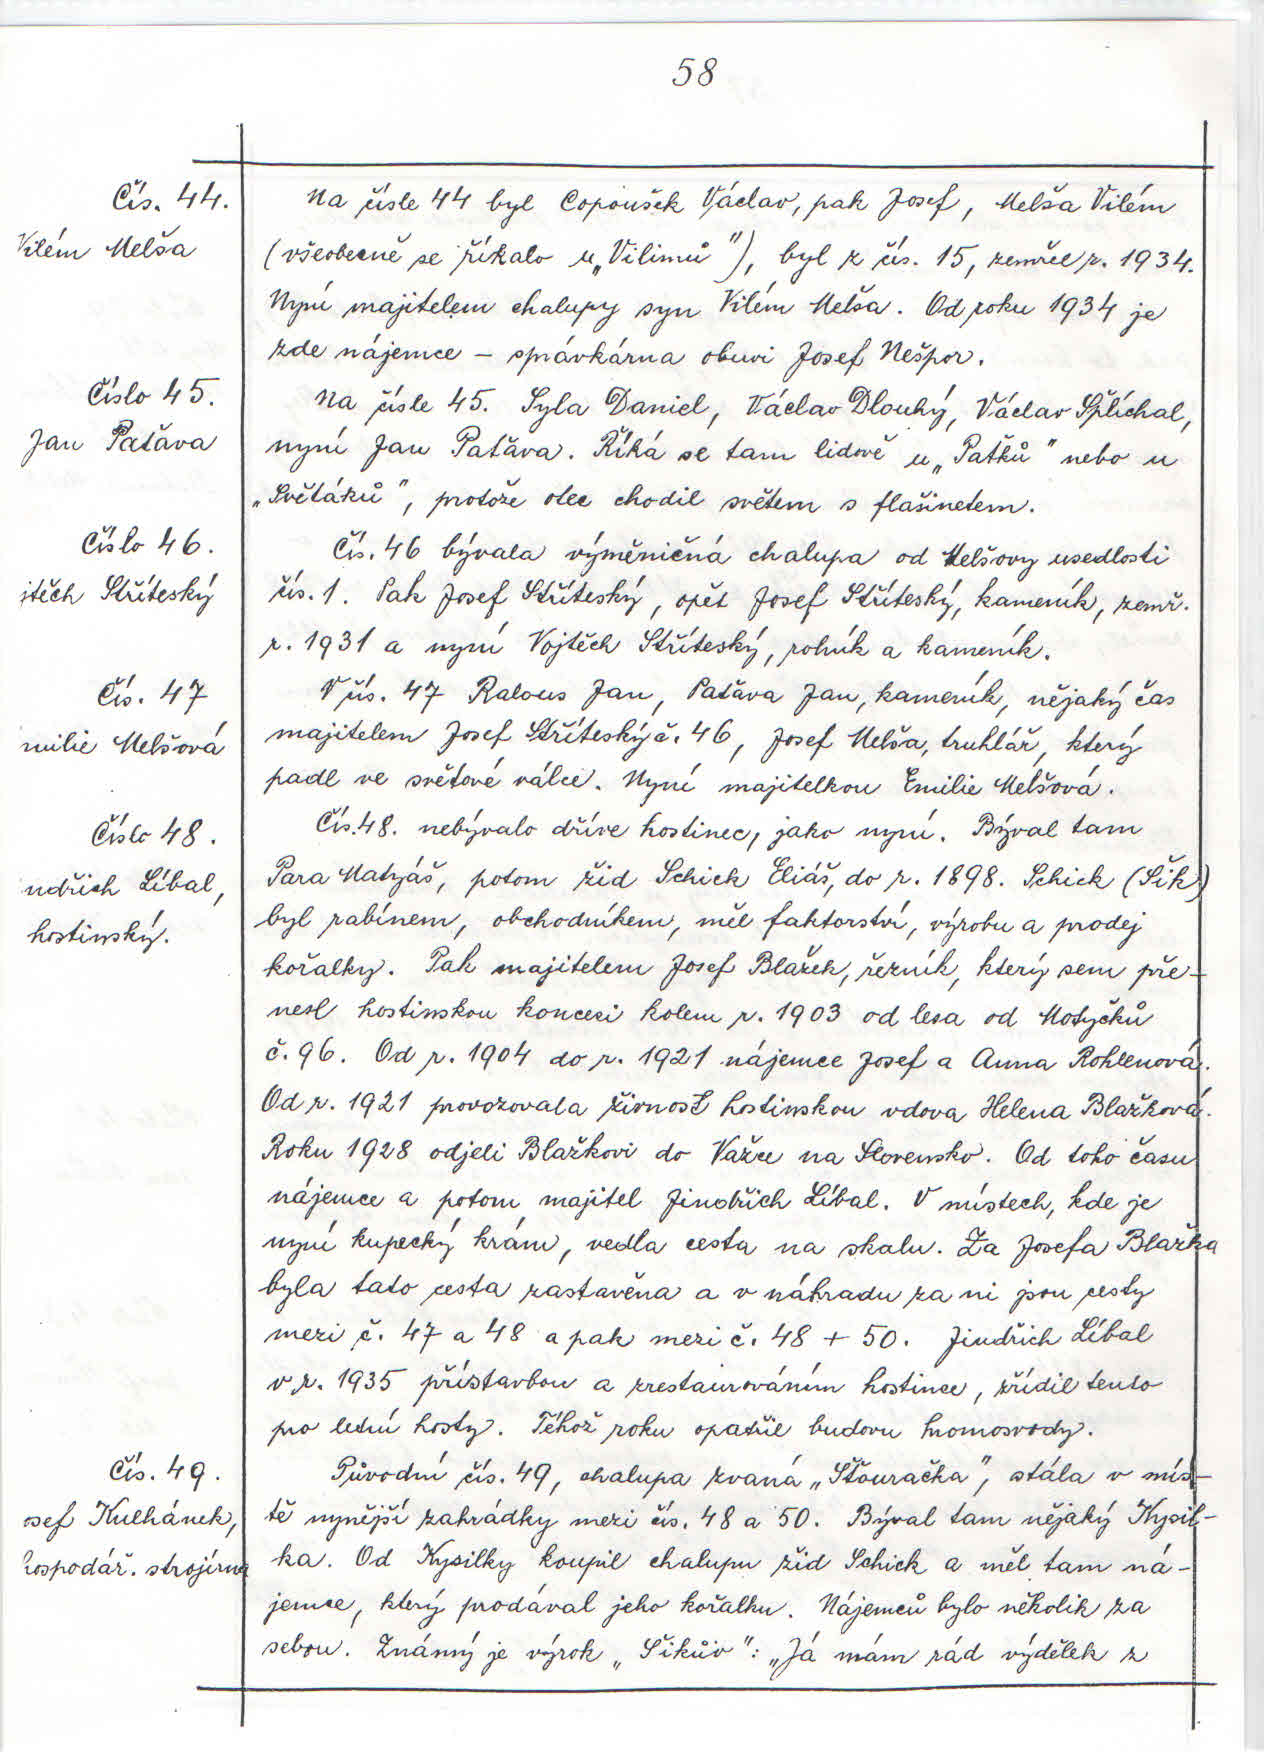 58
Čís. 44.
Vilém Melša
Na čísle 44 byl Copoušek Václav, pak Josef, Melša Vilém
(všeobecně se říkalo u „Vilimů"), byl z čís. 15, zemřel r. 1934.
Nyní majitelem chalupy syn Vilém Melša. Od roku 1934 je
zde nájemce – správkárna obuvi Josef Nešpor.
Číslo 45.
Jan Paťava
Na čísle 45. Syla Daniel, Václav Dlouhý, Václav Šplíchal,
nyní Jan Paťava. Říká se tam lidově u „Paťků" nebo u
„Světáků", protože otec chodil světem s flašinetem.
Číslo 46.
jtěch Stříteský
Čís. 46 bývala výměničná chalupa od Melšovy usedlosti
čís. 1. Pak Josef Stříteský, opět Josef Stříteský, kameník, zemř.
r. 1931 a nyní Vojtěch Stříteský, rolník a kameník.
Čís. 47
milie Melšová
V čís. 47 Ralous Jan, Paťava Jan, kameník, nějaký čas
majitelem Josef Stříteský č. 46, Josef Melša, truhlář, který
padl ve světové válce. Nyní majitelkou Emilie Melšová.
Číslo 48.
ndřich Líbal,
hostinský.
Čís. 48. nebývalo dříve hostinec, jako nyní. Býval tam
Para Matyáš, potom žid Schick Eliáš, do r. 1898. Schick (Šik)
byl rabínem, obchodníkem, měl faktorství, výrobu a prodej
kořalky. Pak majitelem Josef Blažek, řezník, který sem pře-
nesl hostinskou koncesi kolem r. 1903 od lesa od Motyčků
č. 96. Od r. 1904 do r. 1921 nájemce Josef a Anna Rohlenová.
Od r. 1921 provozovala živnost hostinskou vdova Helena Blažková.
Roku 1928 odjeli Blažkovi do Važce na Slovensko. Od toho času
nájemce a potom majitel Jindřich Líbal. V místech, kde je
nyní kupecký krám, vedla cesta na skalu. Za Josefa Blažka
byla tato cesta zastavěna a v náhradu za ni jsou cesty
mezi č. 47 a 48 a pak mezi č. 48 + 50. Jindřich Líbal
v r. 1935 přístavbou a zrestaurováním hostince, zřídil tento
pro letní hosty. Téhož roku opatřil budovu hromosvody.
Čís. 49.
osef Kulhánek,
hospodář. strojírna
Původní čís. 49, chalupa zvaná „Šťouračka", stála v mís-
tě nynější zahrádky mezi čís. 48 a 50. Býval tam nějaký Kysil-
ka. Od Kysilky koupil chalupu žid Schick a měl tam ná-
jemce, který prodával jeho kořalku. Nájemců bylo několik za
sebou. Známý je výrok „Šikův": „Já mám rád výdělek z